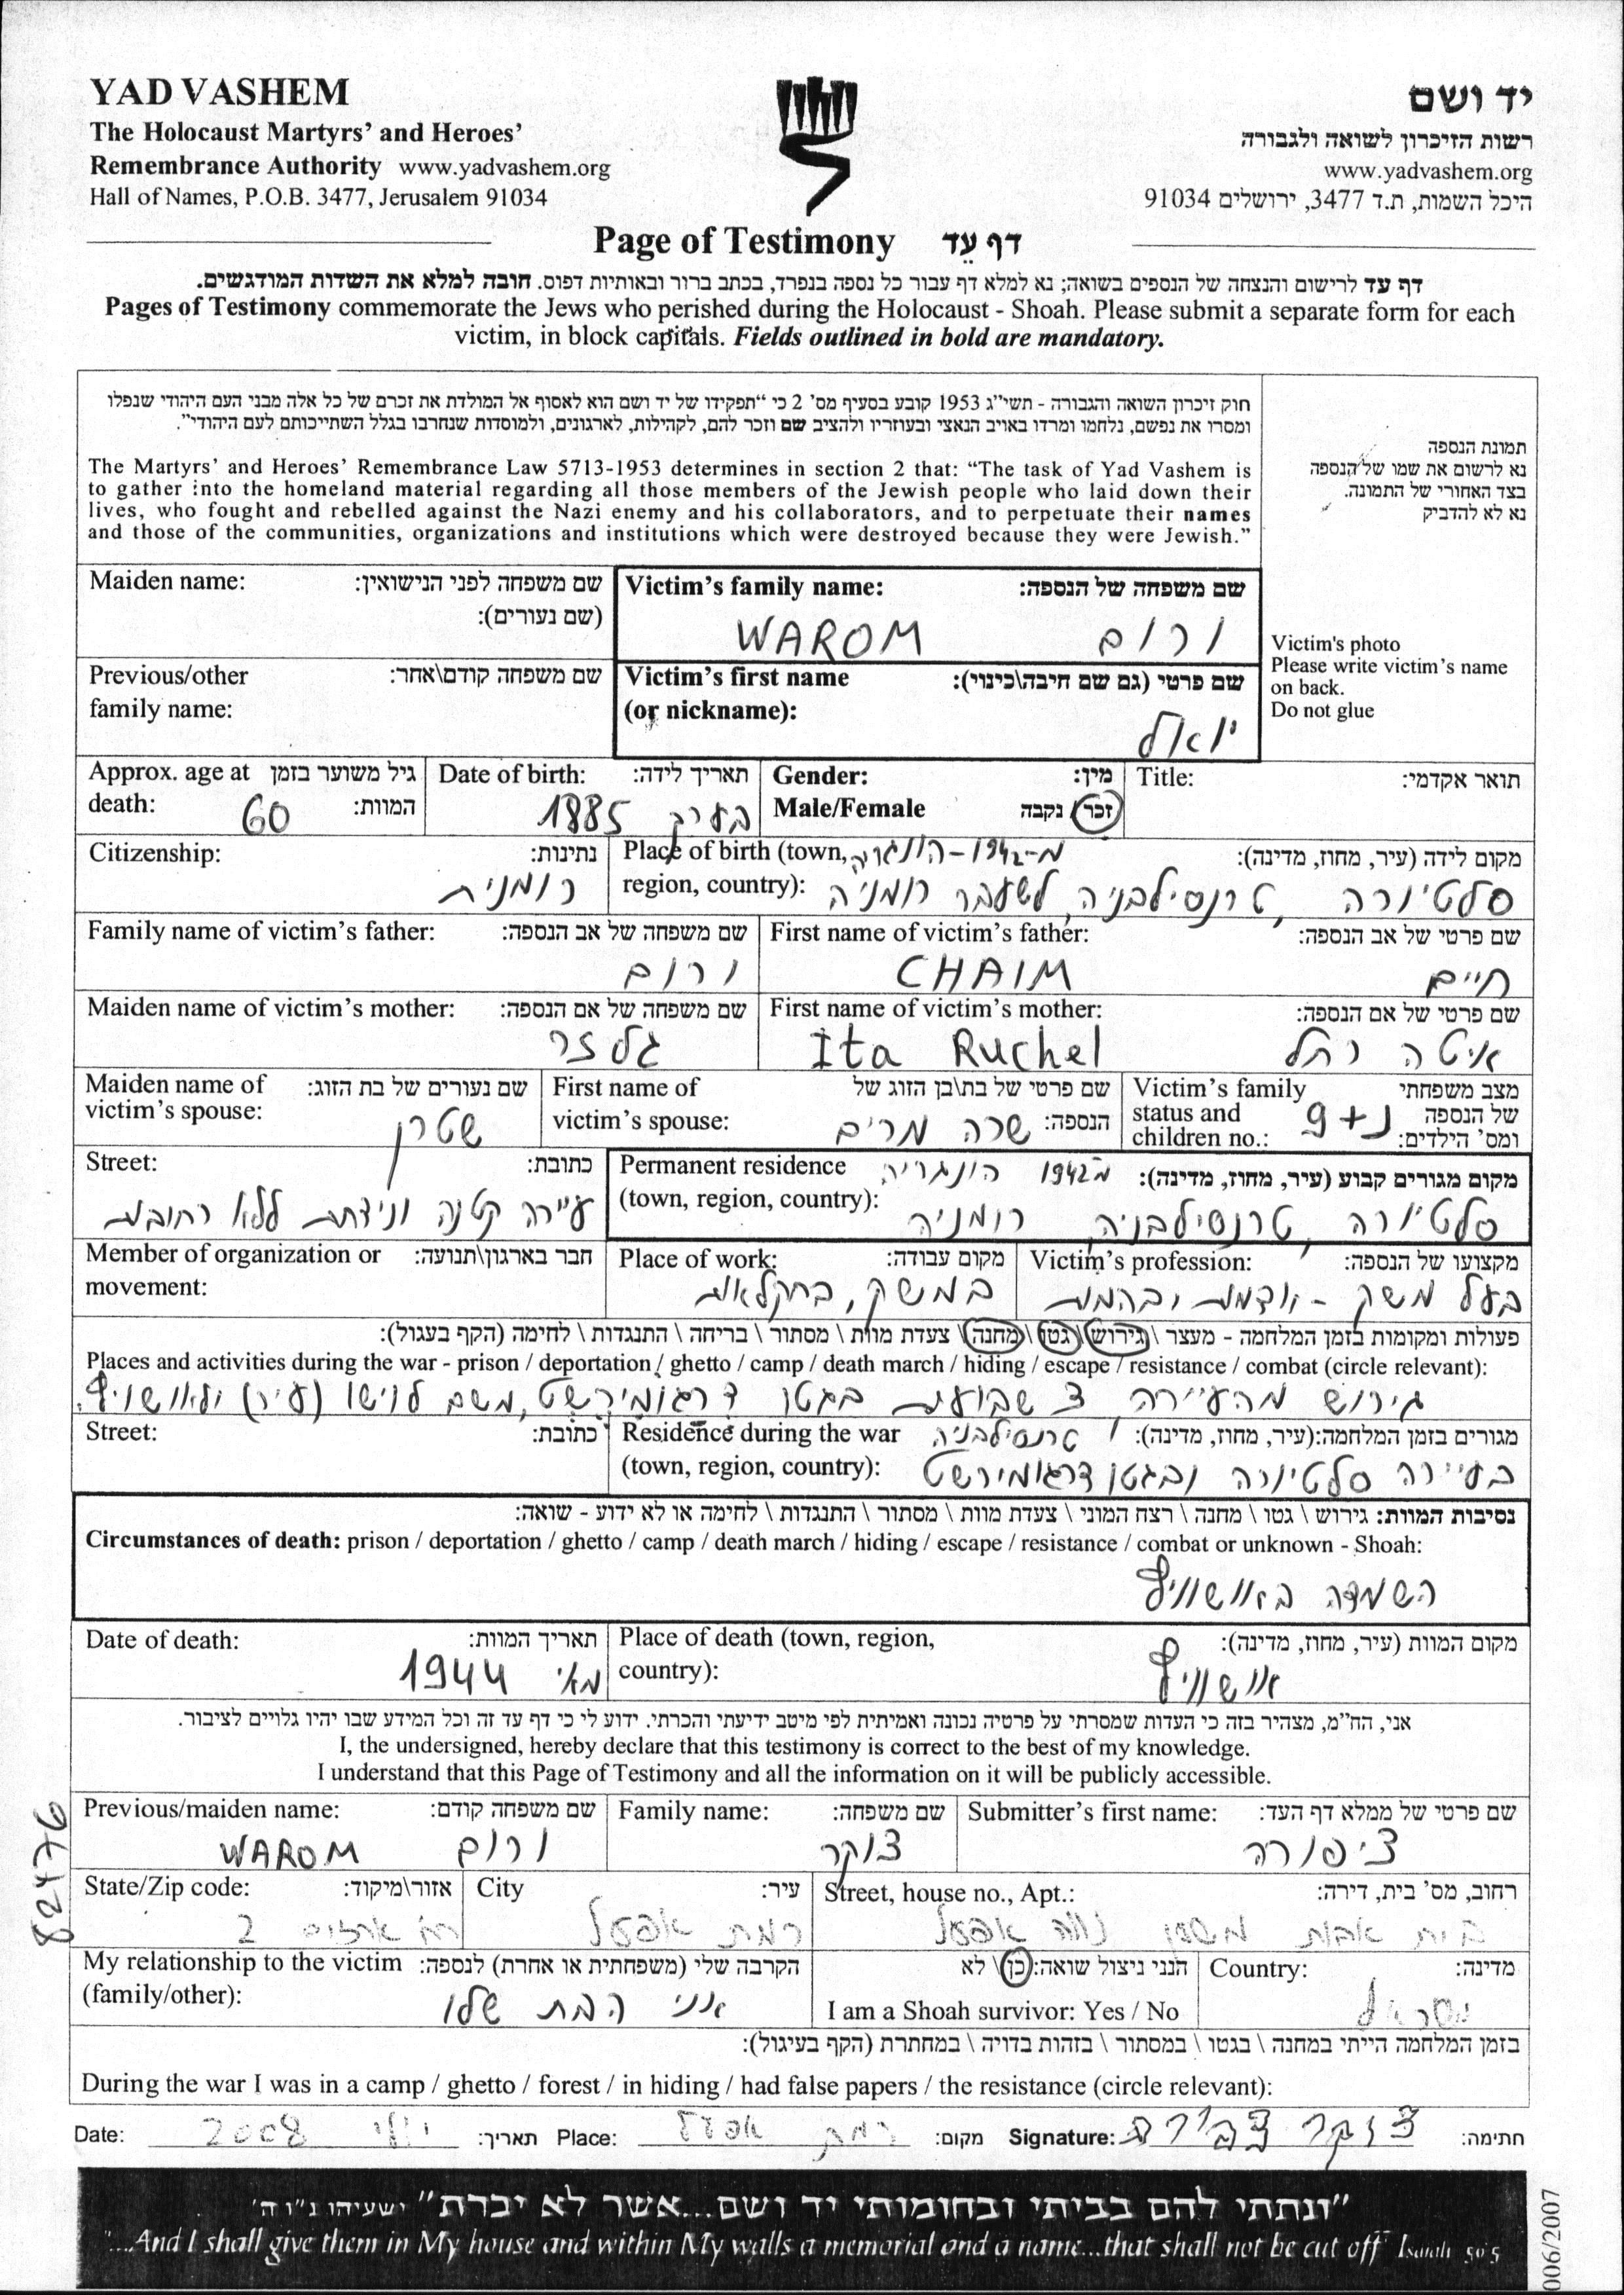 YAD VASHEM
The Holocaust Martyrs' and Heroes'
Remembrance Authority www.yadvashem.org
Hall of Names, P.O.B. 3477, Jerusalem 91034
יד ושם
רשות הזיכרון לשואה ולגבורה
www.yadvashem.org
היכל השמות, ת.ד 3477, ירושלים 91034
Page of Testimony דף עֵד
דף עד לרישום והנצחה של הנספים בשואה; נא למלא דף עבור כל נספה בנפרד, בכתב ברור ובאותיות דפוס. חובה למלא את השדות המודגשים.
Pages of Testimony commemorate the Jews who perished during the Holocaust - Shoah. Please submit a separate form for each
victim, in block capitals. Fields outlined in bold are mandatory.
חוק זיכרון השואה והגבורה - תשי"ג 1953 קובע בסעיף מס' 2 כי "תפקידו של יד ושם הוא לאסוף אל המולדת את זכרם של כל אלה מבני העם היהודי שנפלו
ומסרו את נפשם, נלחמו ומרדו באויב הנאצי ובעוזריו ולהציב שם וזכר להם, לקהילות, לארגונים, ולמוסדות שנחרבו בגלל השתייכותם לעם היהודי".
The Martyrs' and Heroes' Remembrance Law 5713-1953 determines in section 2 that: "The task of Yad Vashem is
to gather into the homeland material regarding all those members of the Jewish people who laid down their
lives, who fought and rebelled against the Nazi enemy and his collaborators, and to perpetuate their names
and those of the communities, organizations and institutions which were destroyed because they were Jewish."
תמונת הנספה
נא לרשום את שמו של הנספה
בצד האחורי של התמונה.
נא לא להדביק
Victim's photo
Please write victim's name
on back.
Do not glue
Maiden name: שם משפחה לפני הנישואין:
(שם נעורים):
Victim's family name: שם משפחה של הנספה:
WAROM ורום
Previous/other שם משפחה קודם\אחר:
family name:
Victim's first name שם פרטי (גם שם חיבה\כינוי):
(or nickname):
יואל
Approx. age at גיל משוער בזמן
death: המוות: 60
Date of birth: תאריך לידה:
בערך 1885
Gender: מין:
Male/Female זכר\נקבה
Title: תואר אקדמי:
Citizenship: נתינות:
רומנית
Place of birth (town, מקום לידה (עיר, מחוז, מדינה):
מ-1942 - הונגריה
region, country): סלטיורה, טרנסילבניה, לשעבר רומניה
Family name of victim's father: שם משפחה של אב הנספה:
ורום
First name of victim's father: שם פרטי של אב הנספה:
CHAIM חיים
Maiden name of victim's mother: שם משפחה של אם הנספה:
גלזר
First name of victim's mother: שם פרטי של אם הנספה:
Ita Ruchel איטה רחל
Maiden name of שם נעורים של בת הזוג:
victim's spouse: שטרן
First name of שם פרטי של בת\בן הזוג של
victim's spouse: הנספה: שרה מרים
Victim's family מצב משפחתי
status and של הנספה
children no.: ומס' הילדים: נ+9
Street: כתובת:
עיירה קטנה ונידחת ללא רחובות
Permanent residence מקום מגורים קבוע (עיר, מחוז, מדינה):
מ1942 הונגריה
(town, region, country): סלטיורה, טרנסילבניה, רומניה
Member of organization or חבר בארגון\תנועה:
movement:
Place of work: מקום עבודה:
במשק, בחקלאות
Victim's profession: מקצועו של הנספה:
בעל משק - אדמות ובהמות
פעולות ומקומות בזמן המלחמה - מעצר \ גירוש \ גטו \ מחנה \ צעדת מוות \ מסתור \ בריחה \ התנגדות \ לחימה (הקף בעגול):
Places and activities during the war - prison / deportation / ghetto / camp / death march / hiding / escape / resistance / combat (circle relevant):
גירוש מהעיירה, 3 שבועות בגטו דרגומירשט, משם לוישו (עיר) ולאושוויץ.
Street: כתובת:
Residence during the war מגורים בזמן המלחמה:(עיר, מחוז, מדינה):
טרנסילבניה
(town, region, country): בעיירה סלטיורה ובגטו דרגומירשט
נסיבות המוות: גירוש \ גטו \ מחנה \ רצח המוני \ צעדת מוות \ מסתור \ התנגדות \ לחימה או לא ידוע - שואה:
Circumstances of death: prison / deportation / ghetto / camp / death march / hiding / escape / resistance / combat or unknown - Shoah:
השמדה באושוויץ
Date of death: תאריך המוות:
מאי 1944
Place of death (town, region, מקום המוות (עיר, מחוז, מדינה):
country): אושוויץ
אני, הח"מ, מצהיר בזה כי העדות שמסרתי על פרטיה נכונה ואמיתית לפי מיטב ידיעתי והכרתי. ידוע לי כי דף עד זה וכל המידע שבו יהיו גלויים לציבור.
I, the undersigned, hereby declare that this testimony is correct to the best of my knowledge.
I understand that this Page of Testimony and all the information on it will be publicly accessible.
Previous/maiden name: שם משפחה קודם:
WAROM ורום
Family name: שם משפחה:
צוקר
Submitter's first name: שם פרטי של ממלא דף העד:
ציפורה
State/Zip code: אזור\מיקוד:
2
City עיר:
רמת אפעל
Street, house no., Apt.: רחוב, מס' בית, דירה:
בית אבות משען נווה אפעל
My relationship to the victim הקרבה שלי (משפחתית או אחרת) לנספה:
(family/other): אני הבת שלו
הנני ניצול שואה: כן \ לא
I am a Shoah survivor: Yes / No
Country: מדינה:
ישראל
בזמן המלחמה הייתי במחנה \ בגטו \ במסתור \ בזהות בדויה \ במחתרת (הקף בעיגול):
During the war I was in a camp / ghetto / forest / in hiding / had false papers / the resistance (circle relevant):
Date: יולי 2008 תאריך: Place: רמת אפעל מקום: Signature: צוקר ציפורה חתימה:
"ונתתי להם בביתי ובחומותי יד ושם...אשר לא יכרת" ישעיהו נ"ו ה'
"...And I shall give them in My house and within My walls a memorial and a name...that shall not be cut off" Isaiah 56:5
82476
006/2007